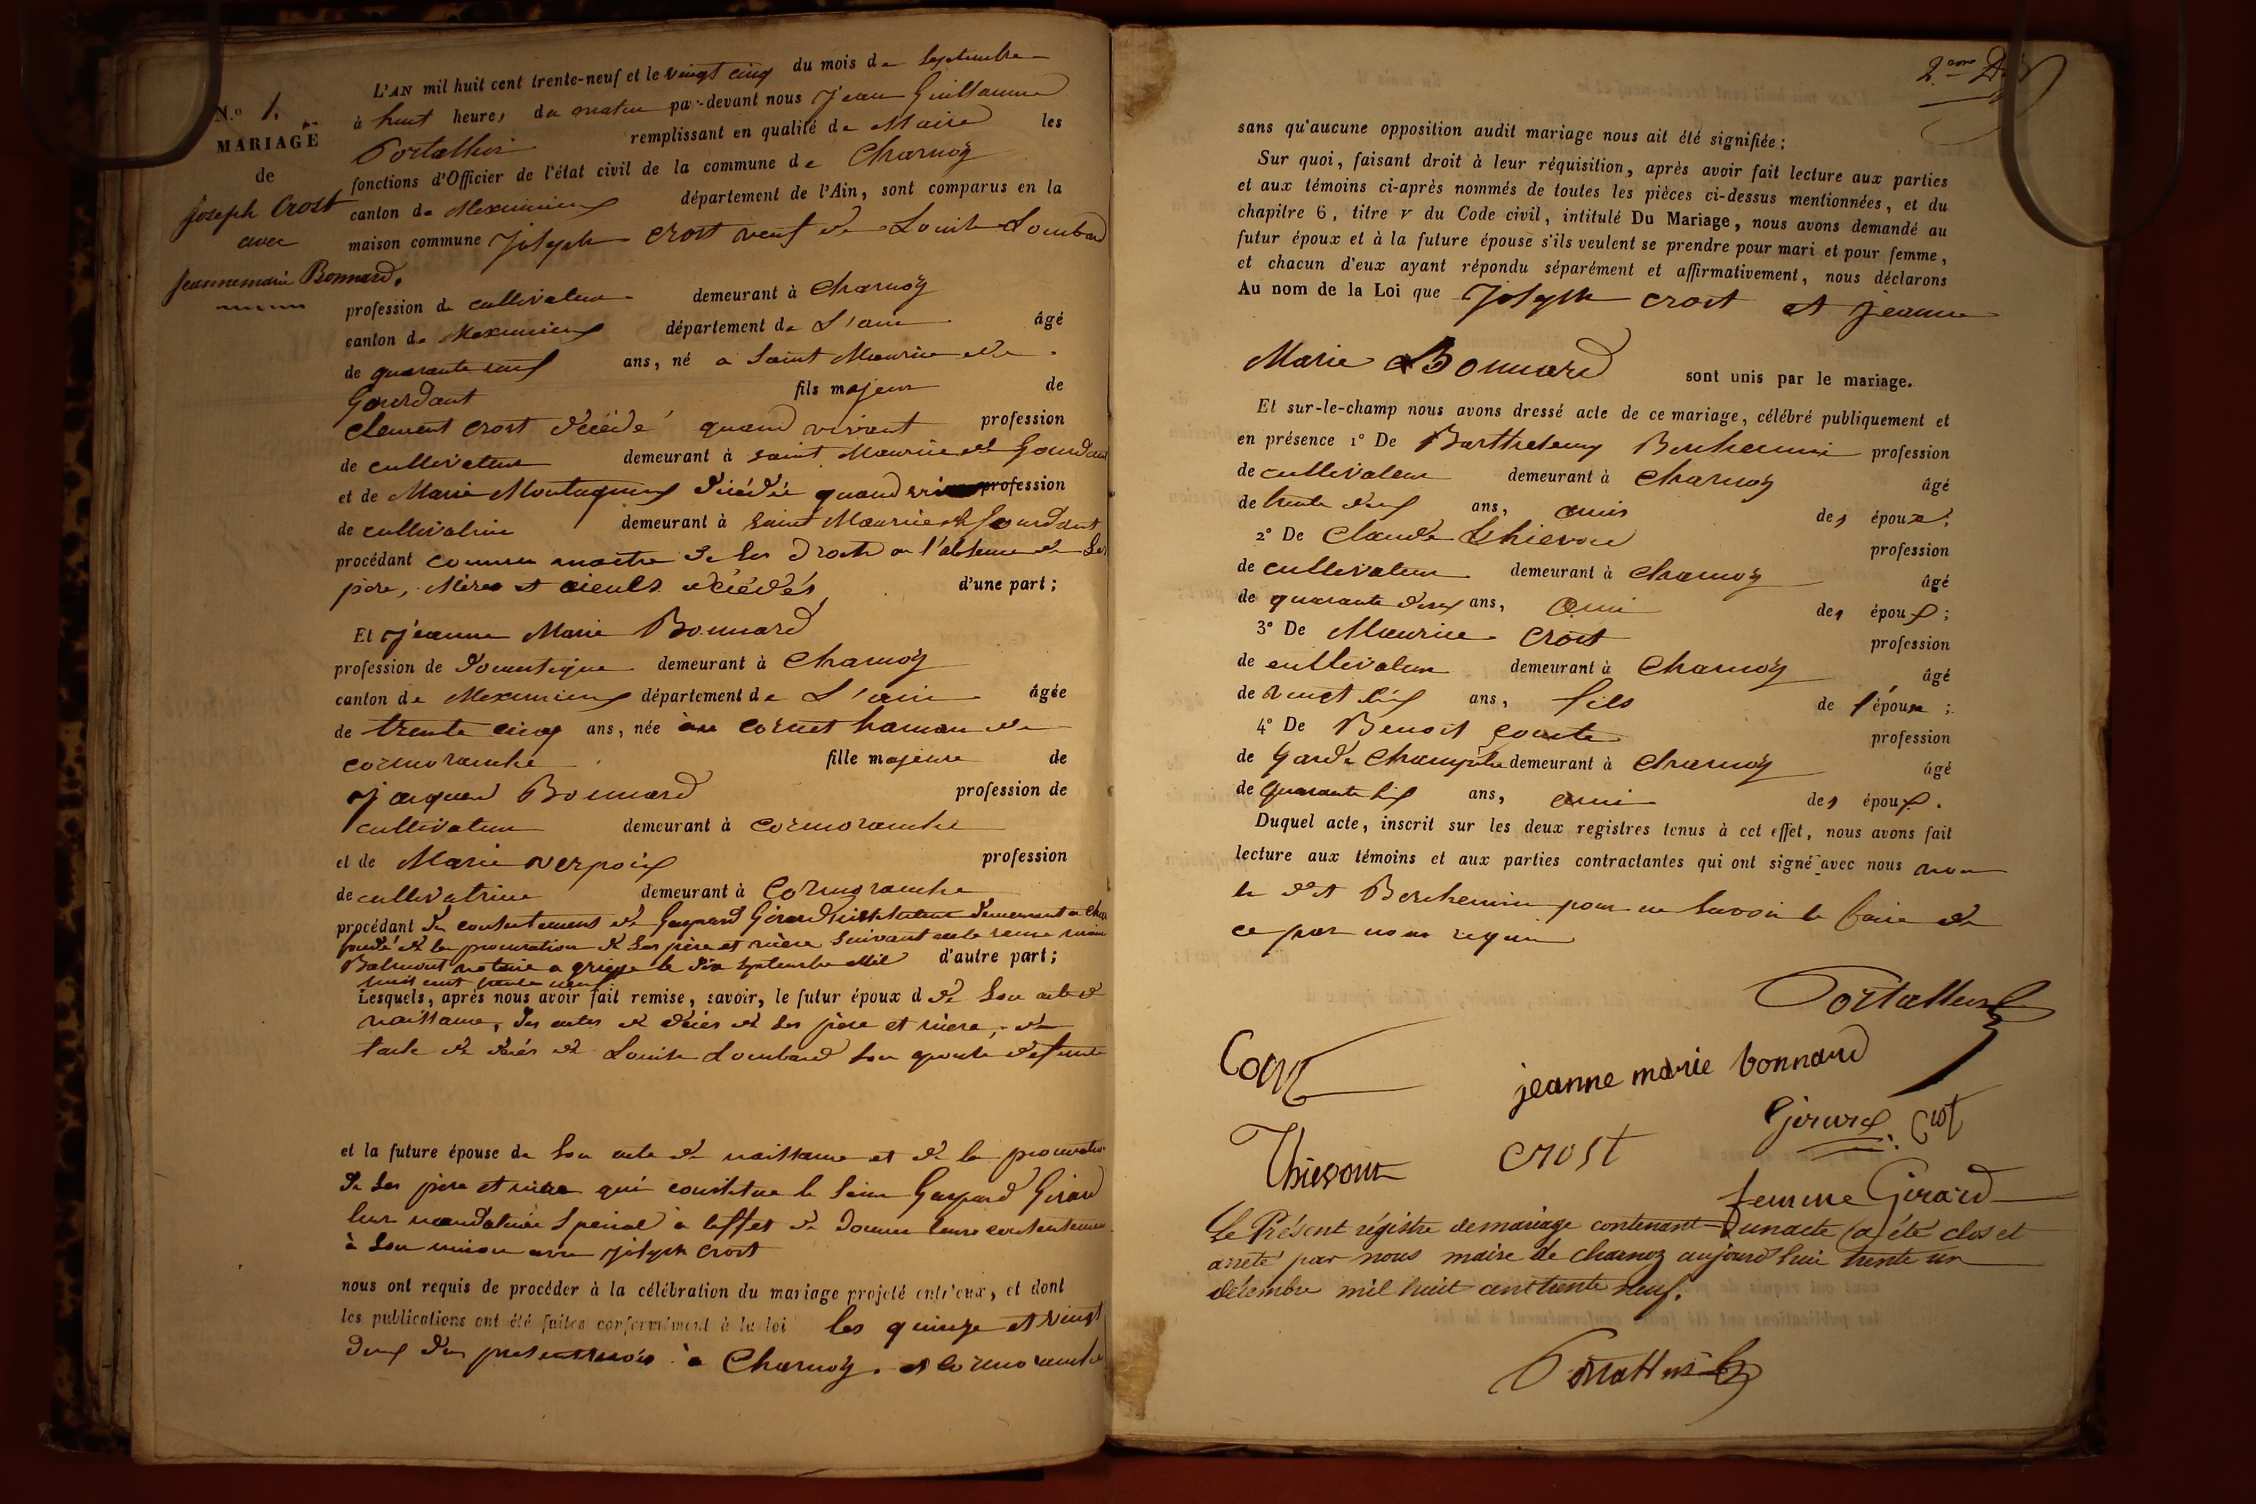 N.º 1.
MARIAGE
de
Joseph Crost
avec
Jeannemarie Bonnard.
L'AN mil huit cent trente-neuf et le vingt cinq du mois de Septembre
à huit heures du matin par-devant nous Jean Guillaume
Portallier remplissant en qualité de Maire les
fonctions d'Officier de l'état civil de la commune de Charnoz
canton de Meximieux département de l'Ain, sont comparus en la
maison commune Joseph Crost veuf de Louise Lombard
profession de cultivateur demeurant à Charnoz
canton de Meximieux département de L'ain âgé
de quarante neuf ans, né a Saint Maurice de
Gourdant fils majeur de
Clement Crost décédé quand vivant profession
de cultivateur demeurant à Saint Maurice de Gourdant
et de Marie décédée quand profession
de cultivatrice demeurant à Saint Maurice de Gourdant
procédant comme maitre de ses droits en l'absence de ses
père, Mère et aieuls décédés d'une part ;
Et Jeanne Marie Bonnard
profession de domestique demeurant à Charnoz
canton de Meximieux département de L'ain âgée
de trente cinq ans, née au cornet hameau de
cormoranche fille majeure de
Jacques Bonnard profession de
cultivateur demeurant à cormoranche
et de Marie verpoix profession
de cultivatrice demeurant à Cormoranche
procédant du consentement de Gaspard Girard instituteur demeurant a
fondé de la procuration de ses père et mère suivant acte
notaire a griege le dix septembre Mil d'autre part ;
huit cent trente neuf
Lesquels, après nous avoir fait remise, savoir, le futur époux d de son acte de
naissance, des actes de décès de ses père et mère, de
l'acte de décès de Louise Lombard son épouse défunte
et la future épouse de son acte de naissance et de la procuration
de ses père et mère qui constitue le sieur Gaspard Girard
leur mandataire spécial à l'effet de donner leur consentement
à son union avec Joseph Crost
nous ont requis de procéder à la célébration du mariage projeté entr'eux, et dont
les publications ont été faites conformément à la loi les quinze et vingt
deux du present mois à Charnoz. et Cormoranche
2.eme
sans qu'aucune opposition audit mariage nous ait été signifiée ;
Sur quoi, faisant droit à leur réquisition, après avoir fait lecture aux parties
et aux témoins ci-après nommés de toutes les pièces ci-dessus mentionnées, et du
chapitre 6, titre v du Code civil, intitulé Du Mariage, nous avons demandé au
futur époux et à la future épouse s'ils veulent se prendre pour mari et pour femme,
et chacun d'eux ayant répondu séparément et affirmativement, nous déclarons
Au nom de la Loi que Joseph Crost et Jeanne
Marie Bonnard sont unis par le mariage.
Et sur-le-champ nous avons dressé acte de ce mariage, célébré publiquement et
en présence 1º De Barthelemy profession
de cultivateur demeurant à Charnoz âgé
de trente deux ans, amis des époux ;
2º De Claude Thievon profession
de cultivateur demeurant à Charnoz âgé
de quarante deux ans, ami des époux ;
3º De Maurice Crost profession
de cultivateur demeurant à Charnoz âgé
de vingt six ans, fils de l'époux ;
4º De Benoit profession
de Garde Champêtre demeurant à Charnoz âgé
de quarante six ans, ami des époux.
Duquel acte, inscrit sur les deux registres tenus à cet effet, nous avons fait
lecture aux témoins et aux parties contractantes qui ont signé avec nous non
le dit pour ne savoir le faire de
ce par nous requis
Portallier
jeanne marie bonnard
Girard. Crost
Thievon
Crost
femme Girard
Le Présent régistre de mariage contenant un acte (a) été clos et
arrété par nous maire de Charnoz aujourd'hui trente un
décembre mil huit cent trente neuf.
Portallier